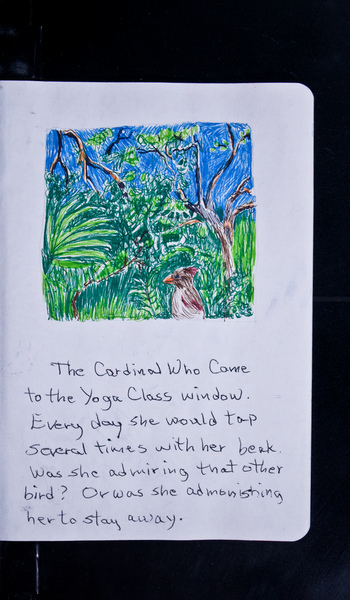 The Cardinal Who Came
to the Yoga Class window.
Every day she would tap
several times with her beak.
Was she admiring that other
bird? Or was she admonishing
her to stay away.